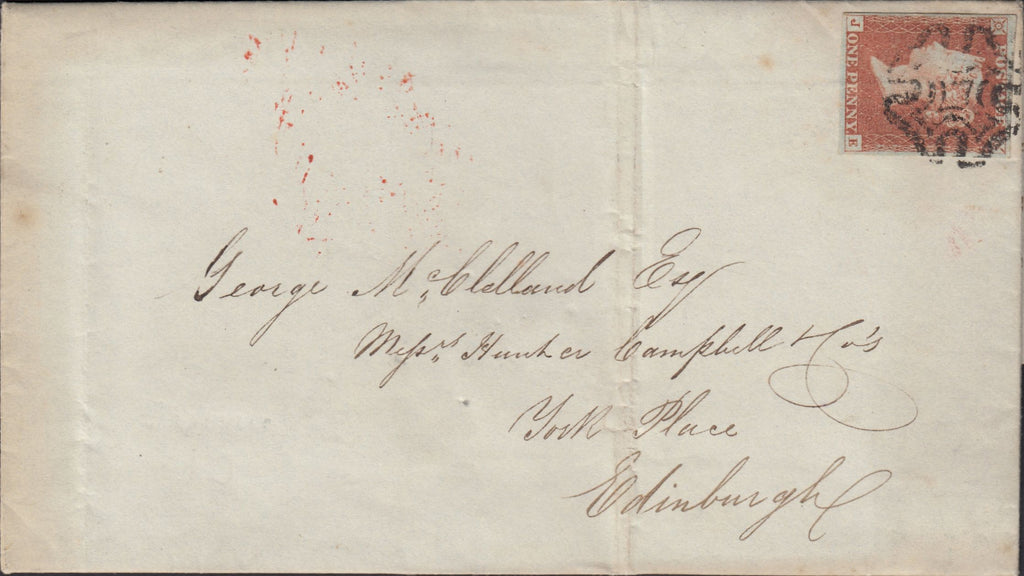 POSTAGE
J ONE PENNY E
George McClelland Esq
Messrs Hunter Campbell & Co's
York Place
Edinburgh